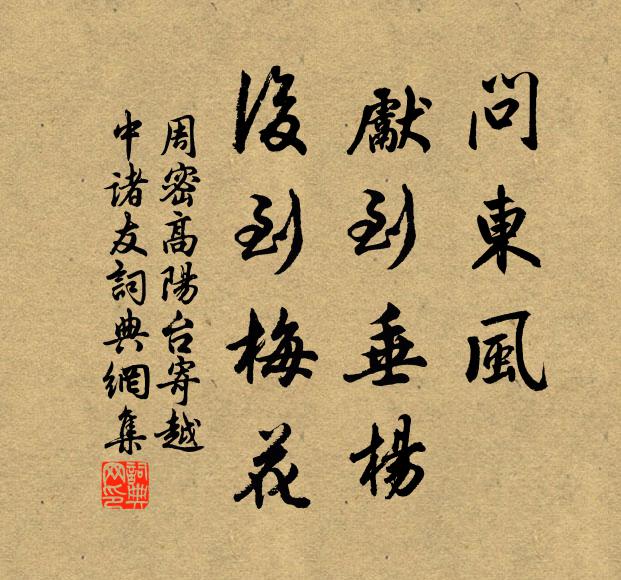 問東風
獻到垂楊
後到梅花
周密高陽台寄越
中諸友詞典網集
詞典
网印